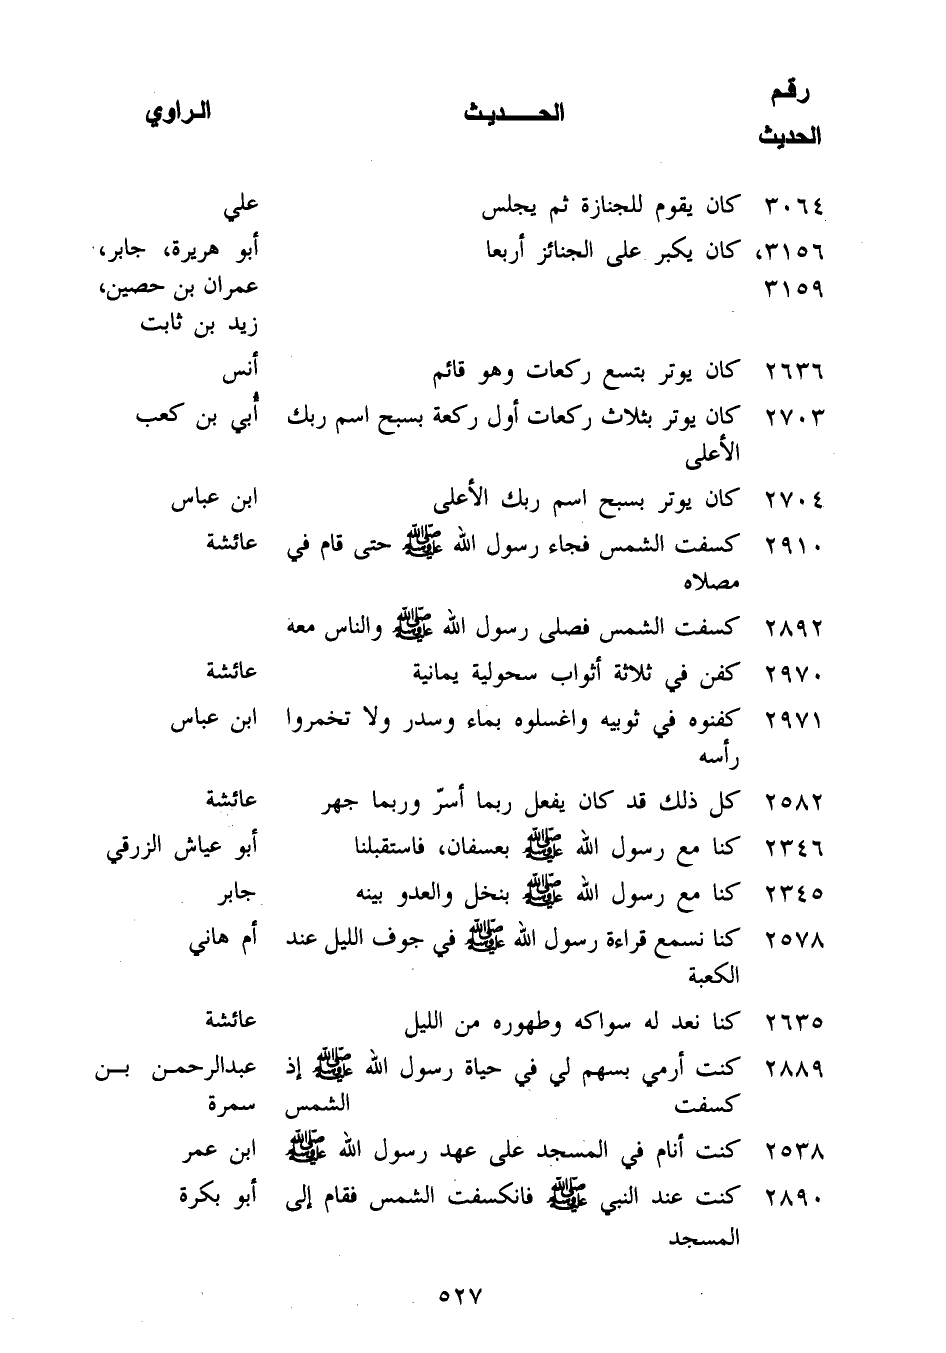 رقم الحديث الحـــديث الـراوي
٣٠٦٤ كان يقوم للجنازة ثم يجلس علي
٣١٥٦، كان يكبر على الجنائز أربعا أبو هريرة، جابر،
٣١٥٩ عمران بن حصين،
زيد بن ثابت
٢٦٣٦ كان يوتر بتسع ركعات وهو قائم أنس
٢٧٠٣ كان يوتر بثلاث ركعات أول ركعة بسبح اسم ربك أُبي بن كعب
الأعلى
٢٧٠٤ كان يوتر بسبح اسم ربك الأعلى ابن عباس
٢٩١٠ كسفت الشمس فجاء رسول الله ﷺ حتى قام في عائشة
مصلاه
٢٨٩٢ كسفت الشمس فصلى رسول الله ﷺ والناس معه
٢٩٧٠ كفن في ثلاثة أثواب سحولية يمانية عائشة
٢٩٧١ كفنوه في ثوبيه واغسلوه بماء وسدر ولا تخمروا ابن عباس
رأسه
٢٥٨٢ كل ذلك قد كان يفعل ربما أسرّ وربما جهر عائشة
٢٣٤٦ كنا مع رسول الله ﷺ بعسفان، فاستقبلنا أبو عياش الزرقي
٢٣٤٥ كنا مع رسول الله ﷺ بنخل والعدو بينه جابر
٢٥٧٨ كنا نسمع قراءة رسول الله ﷺ في جوف الليل عند أم هاني
الكعبة
٢٦٣٥ كنا نعد له سواكه وطهوره من الليل عائشة
٢٨٨٩ كنت أرمي بسهم لي في حياة رسول الله ﷺ إذ عبدالرحمـن بــن
كسفت الشمس سمرة
٢٥٣٨ كنت أنام في المسجد على عهد رسول الله ﷺ ابن عمر
٢٨٩٠ كنت عند النبي ﷺ فانكسفت الشمس فقام إلى أبو بكرة
المسجد
٥٢٧